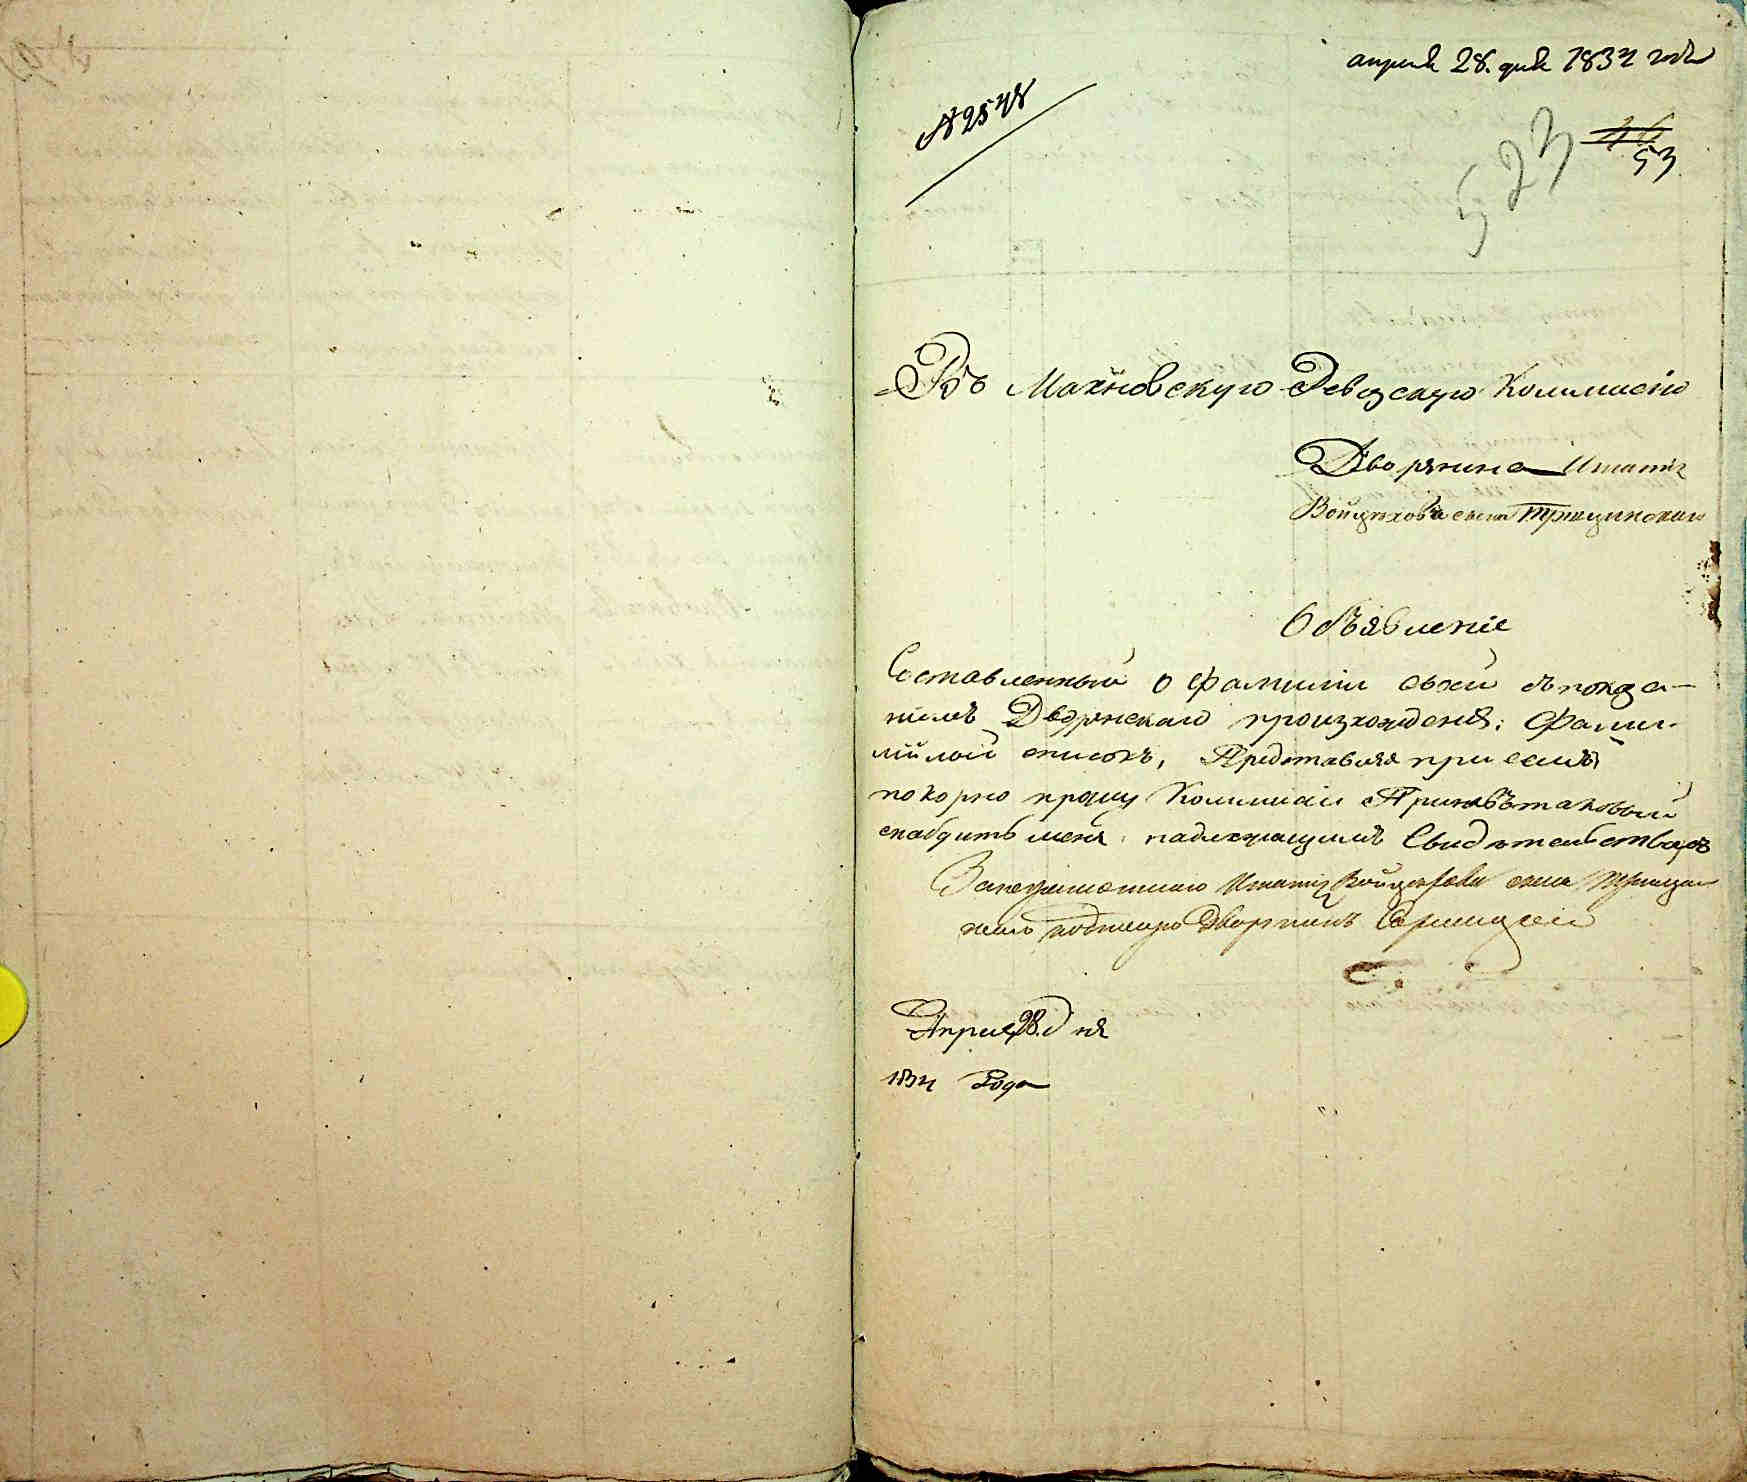 апреля 28. дня 1834 года
№ 2548
523
46
53
Въ Махновскую Ревизскую Коммисію
Дворянина Игнатія
Войцехова сына Тржцинскаго
Объявленіе
Составленный о фамиліи своей съ показа-
ніемъ Дворянскаго произхожденія: Фами-
лійной списокъ, Представляя при семъ
покорно прошу Коммисіи Принявъ таковый
снабдить меня надлежащимъ Свидетельствомъ
Игнатія Войцехова сына
Дворянинъ
Апреля 28. Дня
1834 Года